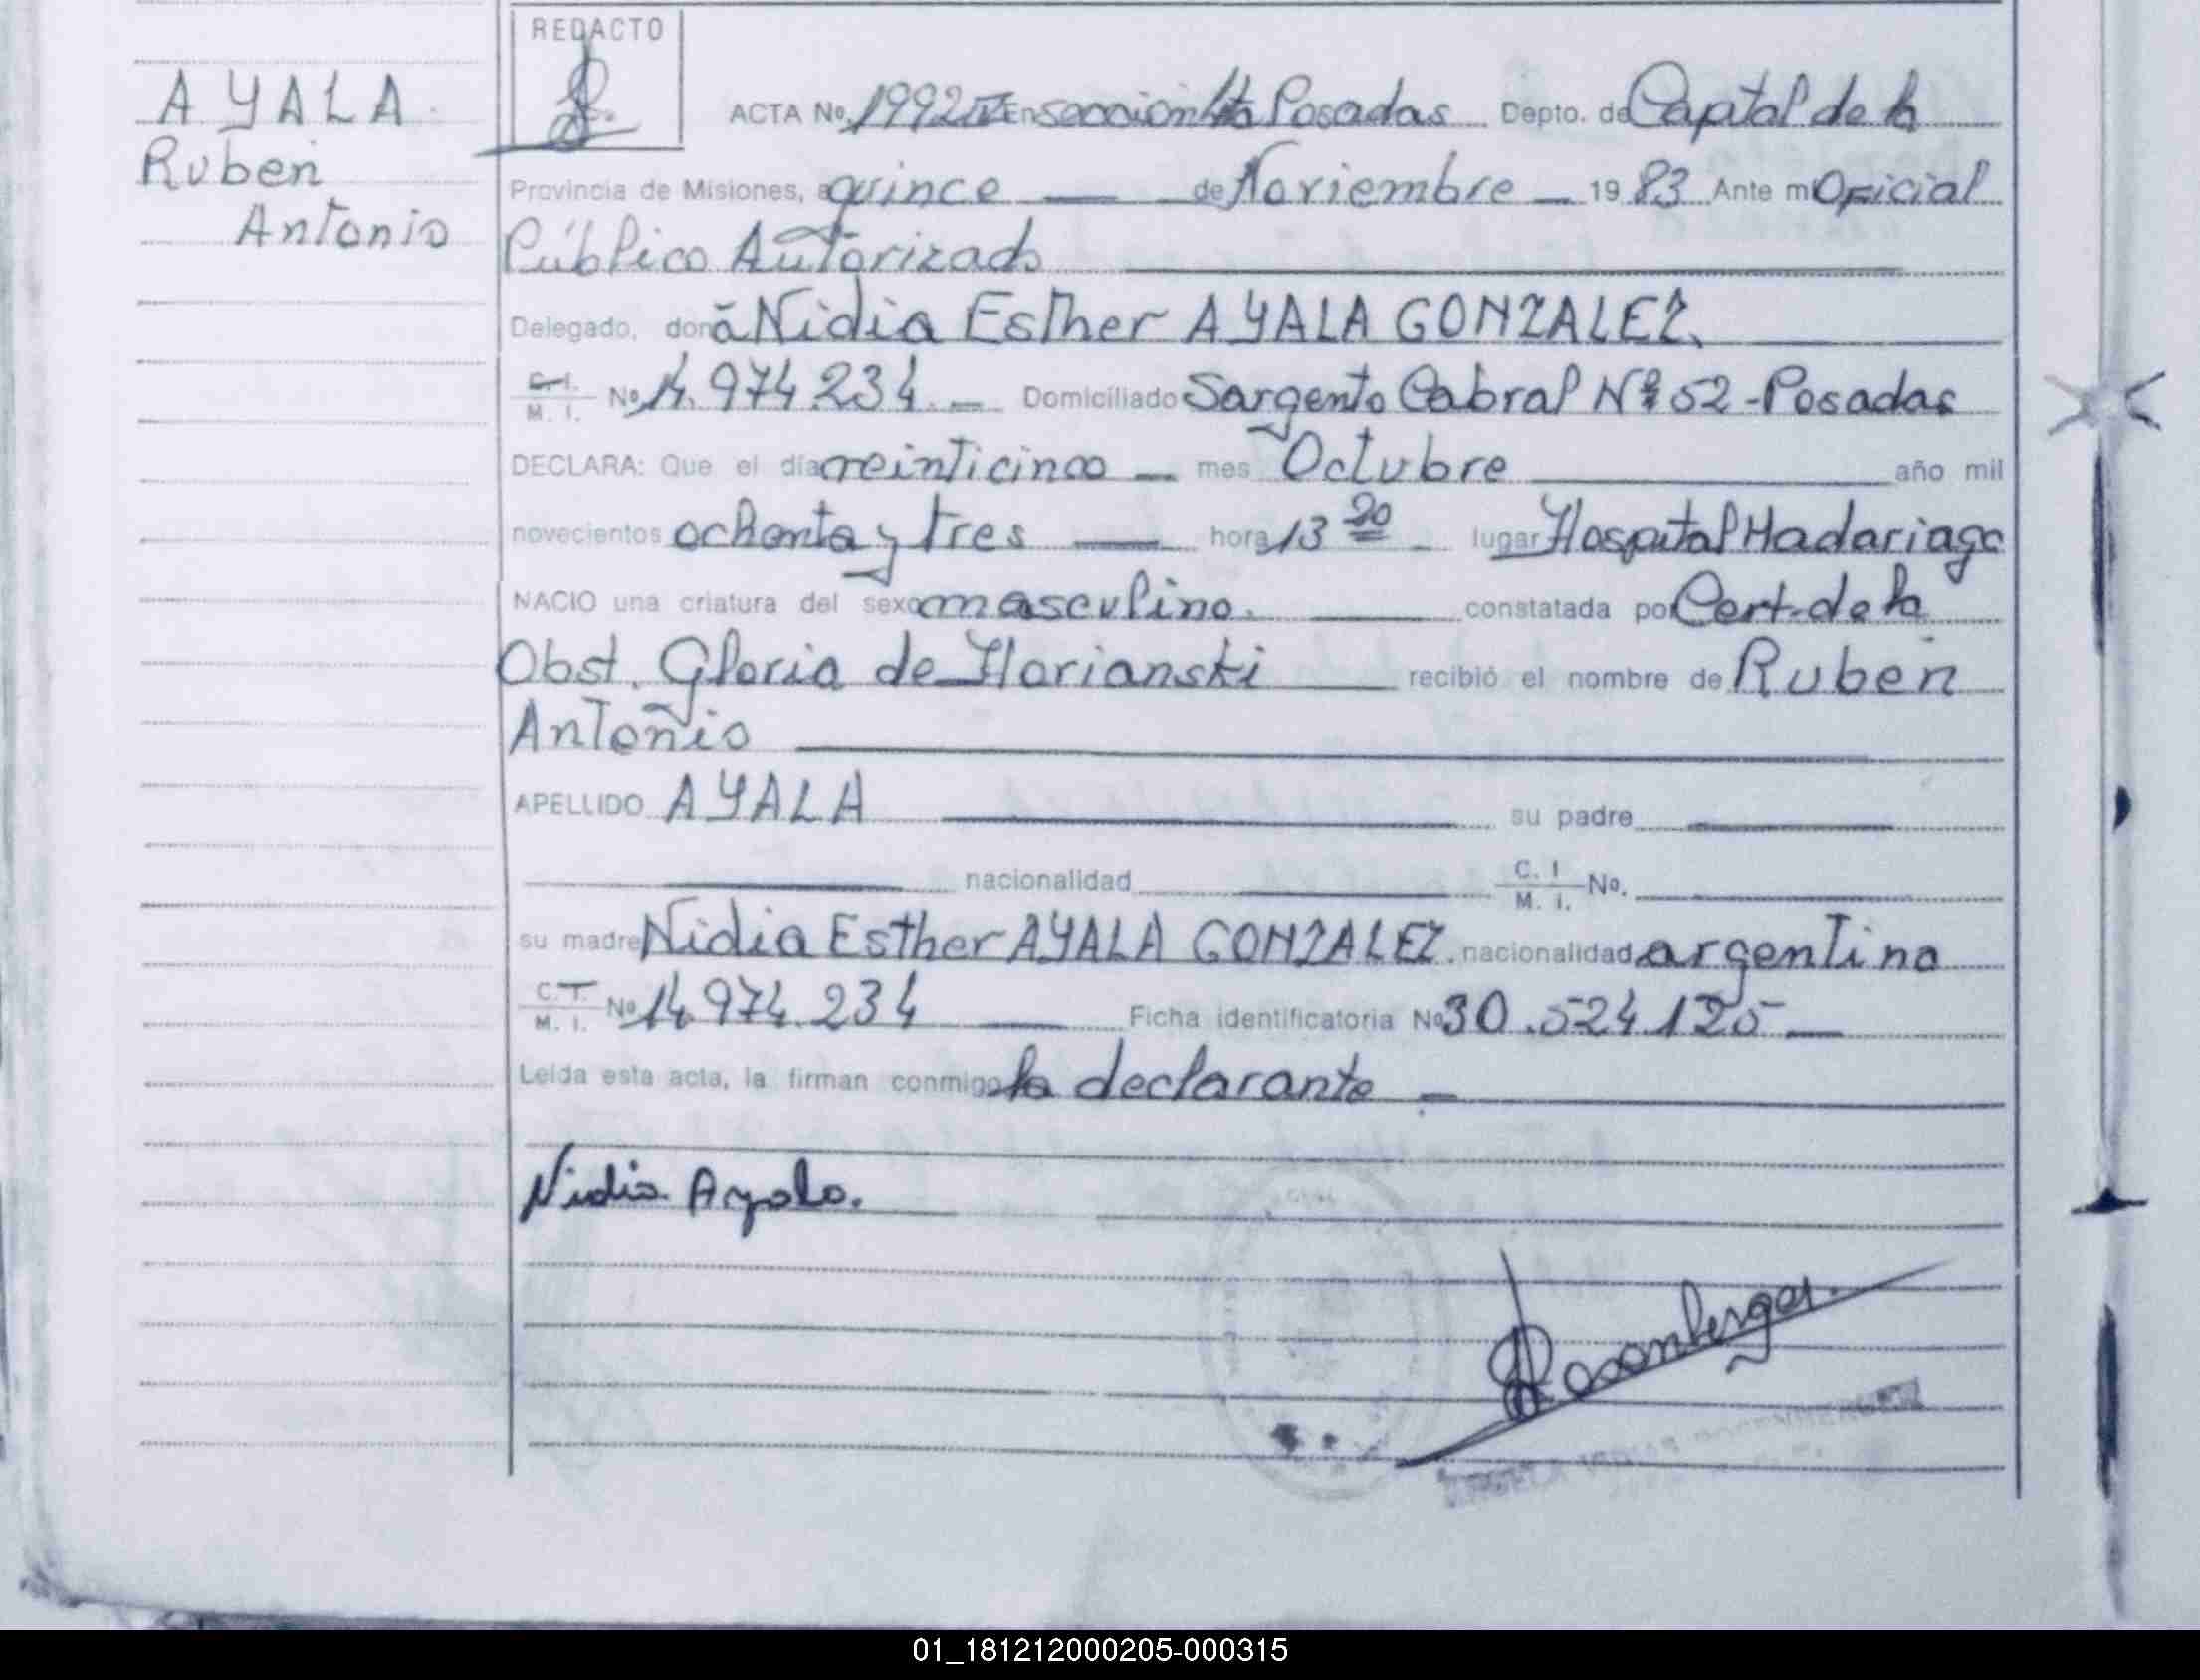 REDACTO
AYALA
Ruben
Antonio
ACTA No. 1992 IV En sección 4ta Posadas Depto. de Capital de la
Provincia de Misiones, a quince de Noviembre 1983 Ante mi Oficial
Público Autorizado
Delegado, doña Nidia Esther AYALA GONZALEZ.
C. I. M. I. No 14.974.234. Domiciliado Sargento Cabral Nº 52 - Posadas
DECLARA: Que el día veinticinco mes Octubre año mil
novecientos ochenta y tres hora 13 20 lugar Hospital Madariaga
NACIO una criatura del sexo masculino. constatada por Cert. de la
Obst. Gloria de recibió el nombre de Ruben
Antonio
APELLIDO AYALA su padre
nacionalidad C. I M. I. No.
su madre Nidia Esther AYALA GONZALEZ. nacionalidad argentina
C. I. M. I. No 14.974.234 Ficha identificatoria No 30.524.125
Leída esta acta, la firman conmigo la declarante
Nidia Ayala.
Rosemberger.
01_181212000205-000315